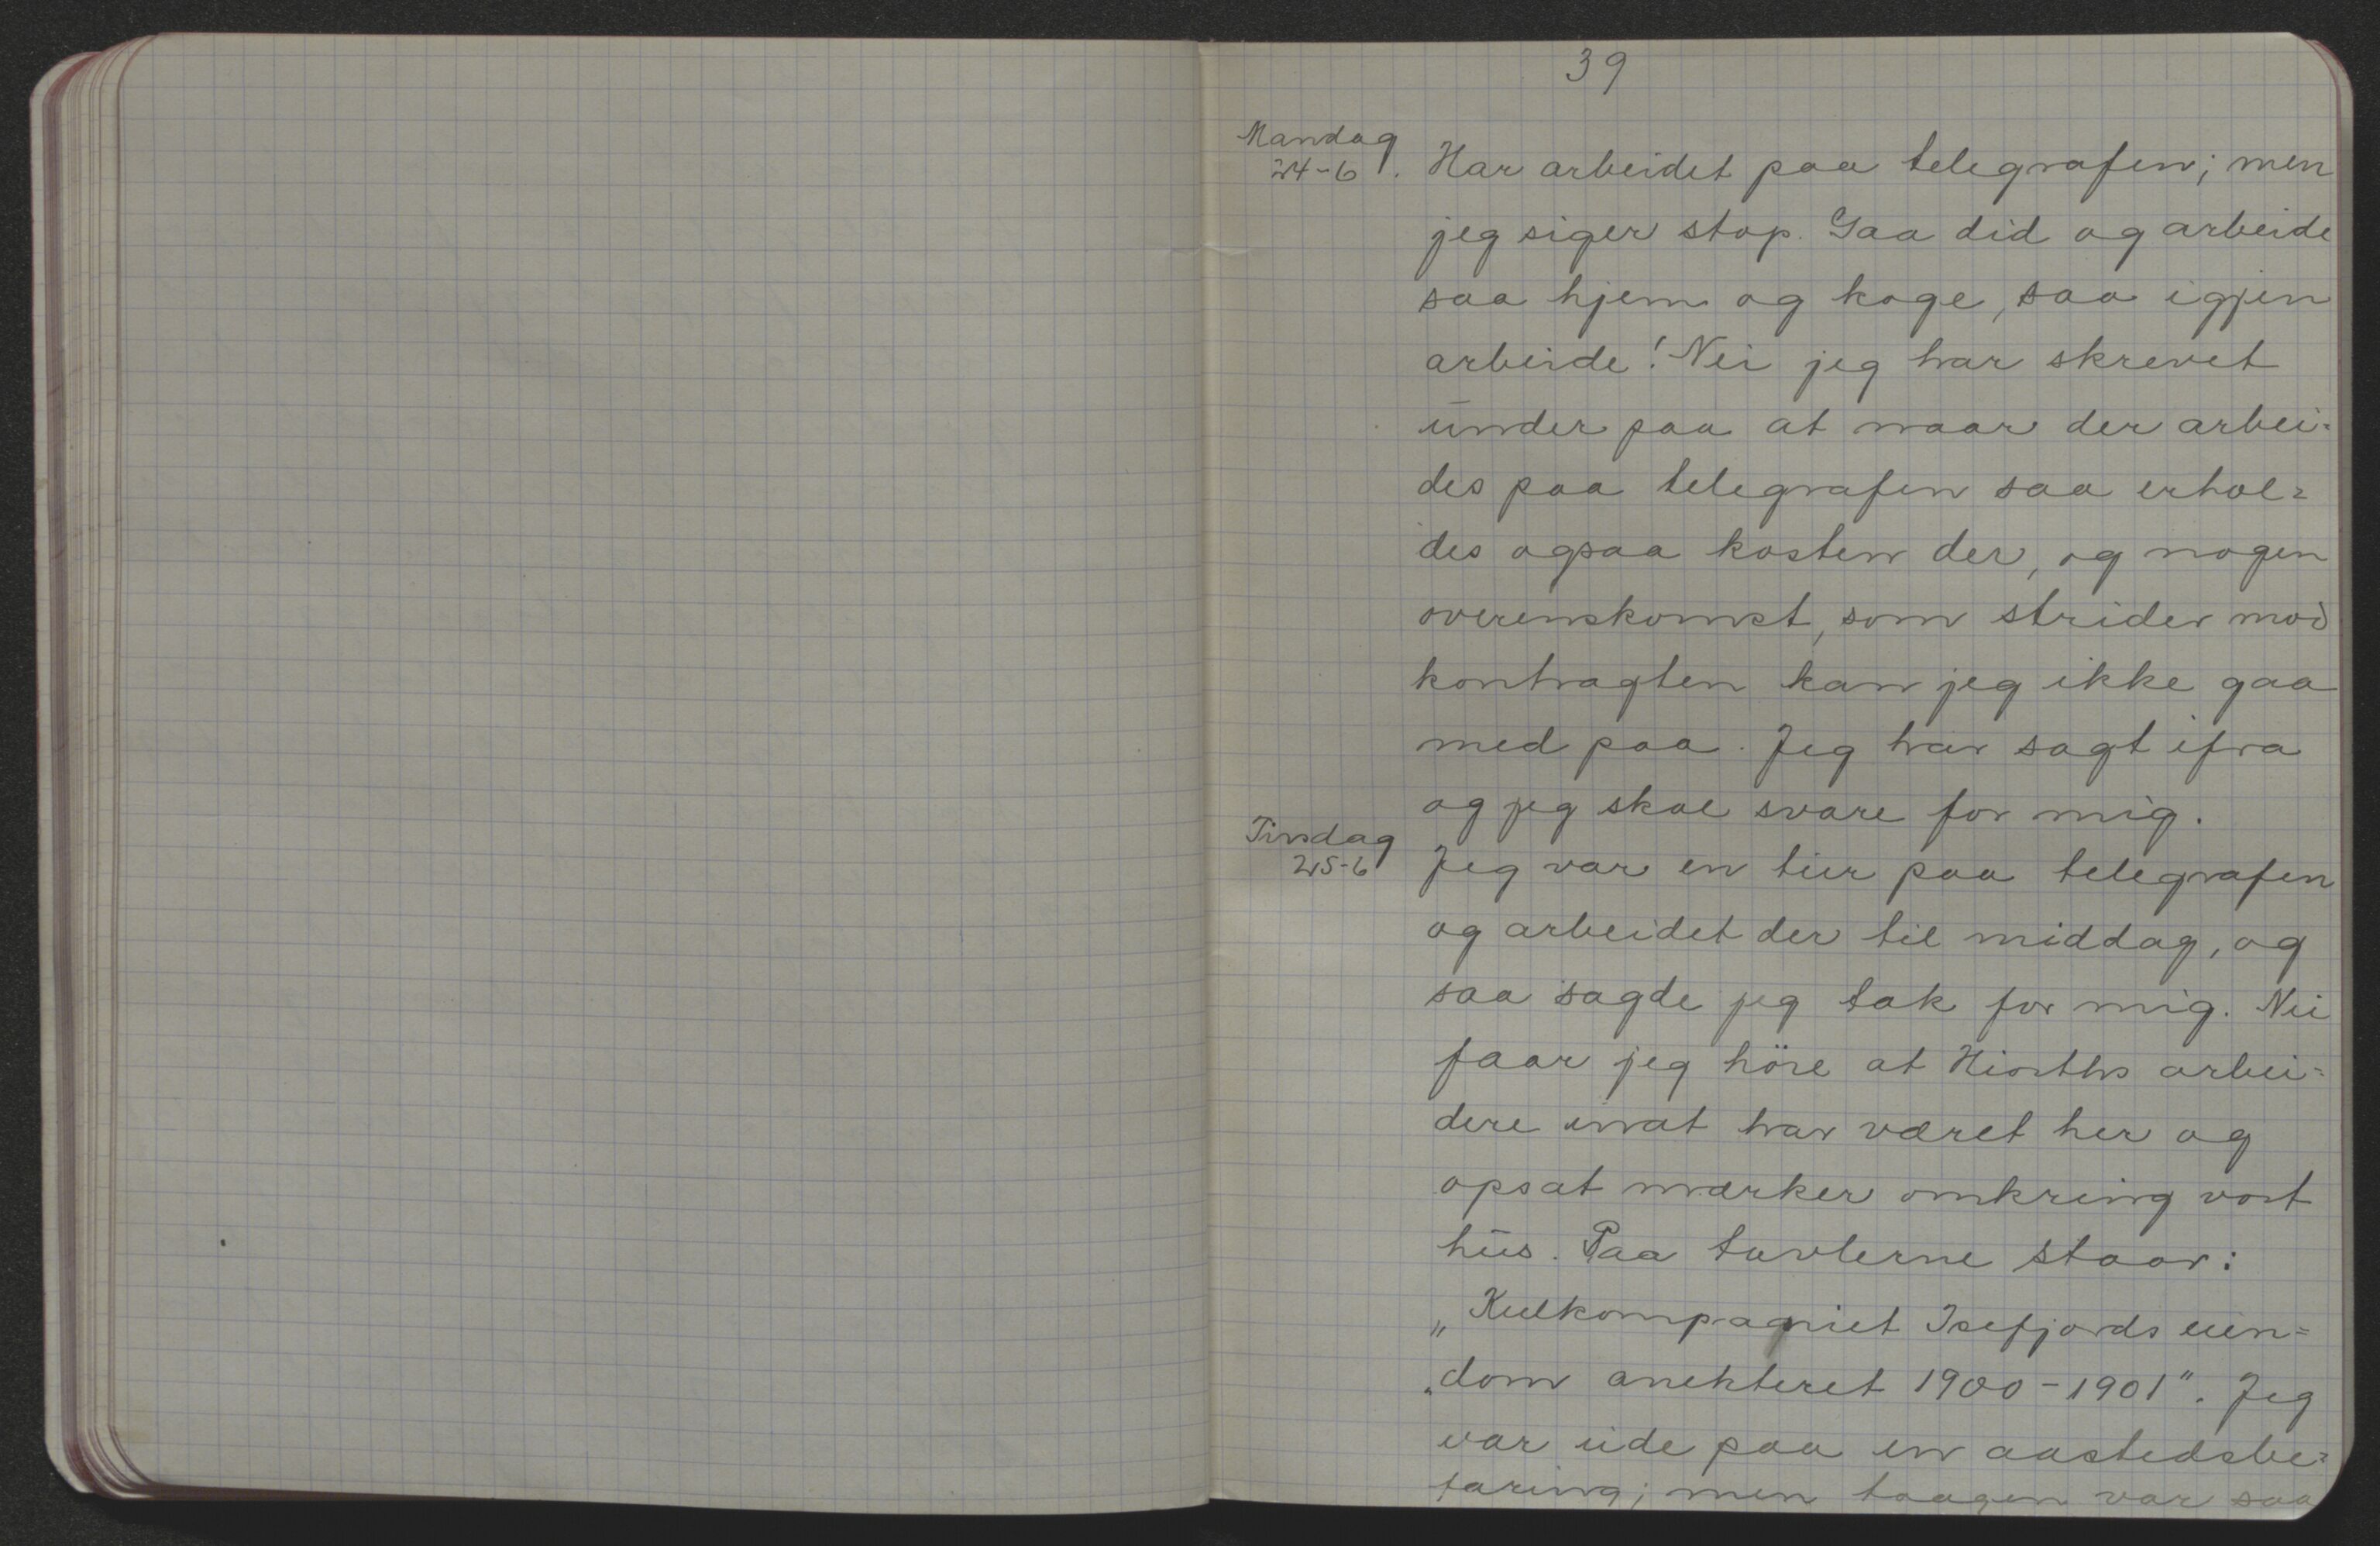 39
Mandag
24-6. Har arbeidet paa telegrafen; men
jeg siger stop. Gaa did og arbeide
saa hjem og koge, saa igjen
arbeide! Nei jeg har skrevet
under paa at naar der arbei=
des paa telegrafen saa erhol=
des ogsaa kosten der, og nogen
overenskomst, som strider mod
kontragten kan jeg ikke gaa
med paa. Jeg har sagt ifra
og jeg skal svare for mig.
Tirsdag
25-6 Jeg var en tur paa telegrafen
og arbeidet der til middag, og
saa sagde jeg tak for mig. Nu
faar jeg höre at Hiorths arbei=
dere inat har været her og
opsat mærker omkring vort
hus. Paa tavlerne staar:
„Kulkompagniet Isefjords eien=
„dom anekteret 1900-1901". Jeg
var ude paa en aastedsbe=
faring; men taagen var saa